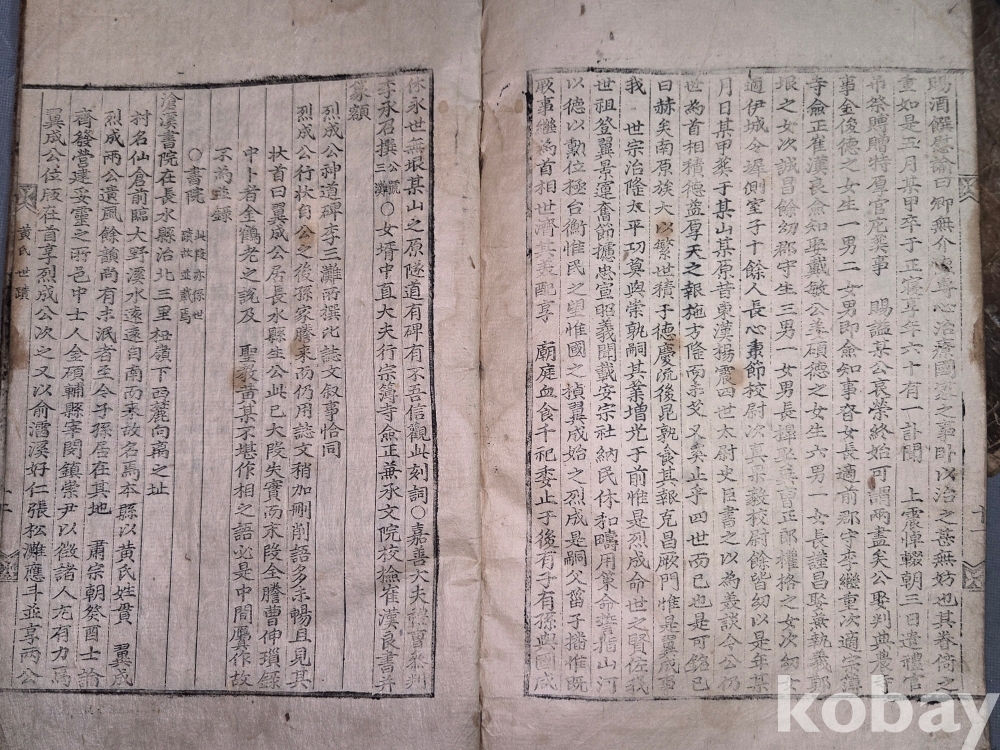 賜酒饌慰諭曰卿無介慮專心治療國家之事卧以治之亦無妨也其眷倚之
重如是正月某甲卒于正寢享年六十有一訃聞 上震悼輟朝三日遣禮官
吊祭贈賻特厚官庀葬事 賜諡某公哀榮終始可謂兩盡矣公娶判典農寺
事金後德之女生一男二女男即僉知事
寺僉正崔漢良僉知娶戴敏公姜碩德之女生六男一女長諡昌娶
垠之女次誠昌餘幼郡守生三男一女男長
適伊城令
月日某甲葬于某山某原昔東漢楊震四世太尉史臣書之以爲美談今公仍
世爲首相積德益厚天之報施方隆而未艾又奚止乎四世而已也是可銘已
曰赫矣南原族大以繁世積于德慶流後昆孰食其報克昌厥門惟是翼成事
我 世宗治隆太平功莫與崇孰嗣其業增光于前惟是烈成命世之賢佐我
世祖登翼景運奮節攄忠宣昭義聞載安宗社納民休和疇用策命誓指山河
以德以勳位極台衡惟民之望惟國之楨翼成始之烈成是嗣父菑子播惟既
厥事繼爲首相世濟其美配享 廟庭血食千祀委止于後有子有孫與國咸
休永世無垠某山之原隧道有碑有不吾信觀此刻詞○嘉善大夫
李承召撰 號三灘公 ○女婿中直大夫行宗簿寺僉正兼承文院校檢崔漢良書并
篆額
烈成公神道碑李三灘所撰此誌文叙事恰同
烈成公行狀自公之後孫家謄來而仍用誌文稍加刪削語多未暢且見其
狀首曰翼成公居長水縣生公此已大段失實而末段全謄曹伸瑣錄
中卜者金鶴老之說及 聖教黃某不堪作相之語必是中間贋作故
不爲並錄
○書院 此段亦係世蹟故並載焉
滄溪書院在長水縣治北三里杻嶺下西麓向离之址
村名仙倉前臨大野溪水逶迤自南而來故名焉本縣以黃氏姓貫 翼成
烈成兩公遺風餘韻尚有未泯者至今子孫居在其地 肅宗朝癸酉士論
齊發營建妥靈之所邑中士人金碩輔縣宰閔鎮崇尹以徵諸人尤有力焉
翼成公位版在首享烈成公次之又以俞㵢溪好仁張松灘應斗並享兩公
黃氏世蹟
kobay